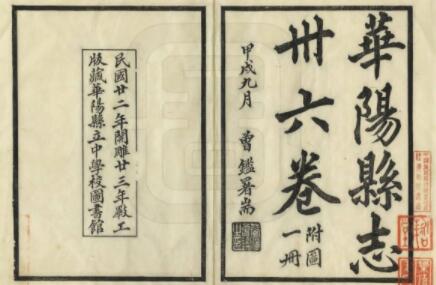 華陽縣志
卅六卷
附圖
一冊
甲戌九月 曾鑑署耑
民國廿二年開雕廿三年毀工
版藏華陽縣立中學校圖書館